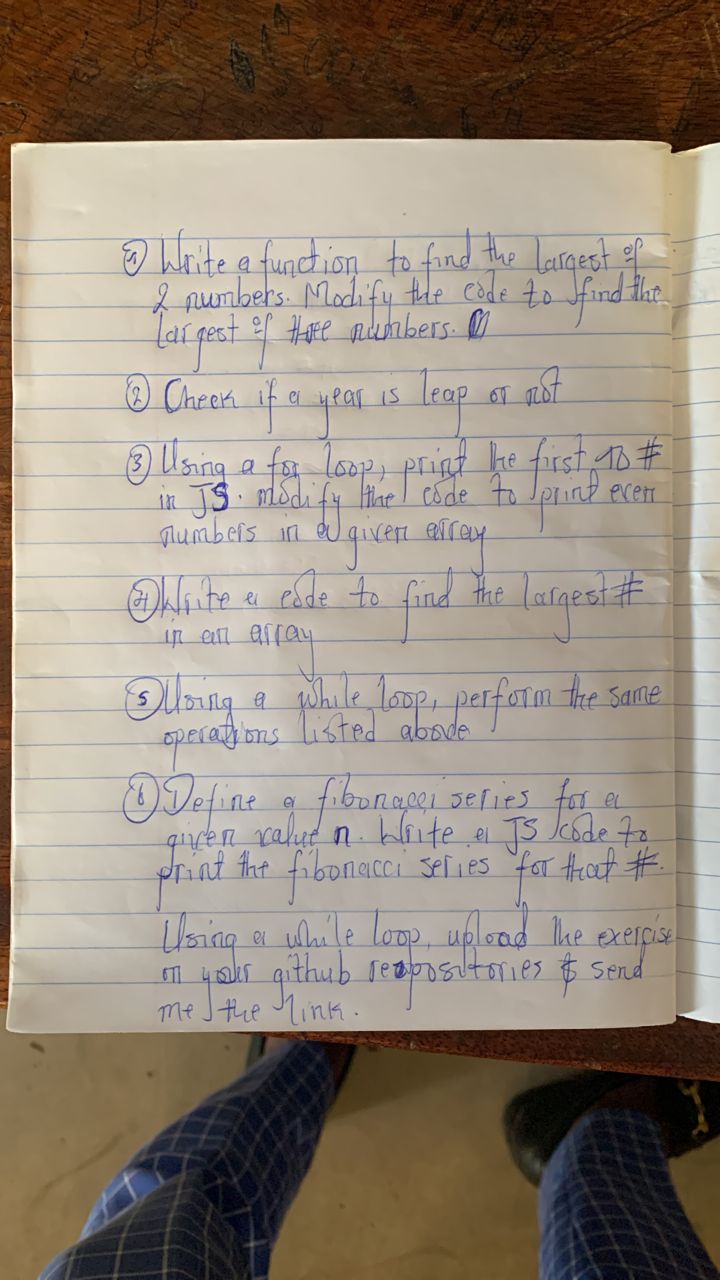 ① Write a function to find the largest of
2 numbers. Modify the code to find the
largest of three numbers.
② Check if a year is leap or not
③ Using a for loop, print the first 10 #
in JS. modify the code to print even
numbers in a given array
④ Write a code to find the largest #
in an array
⑤ Using a while loop, perform the same
operations listed above
⑥ Define a fibonacci series for a
given value n. Write a JS code to
print the fibonacci series for that #.
Using a while loop, upload the exercise
on your github repositories & send
me the link.